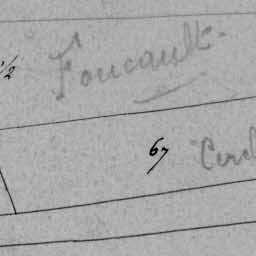 1/2 Foucault.
67